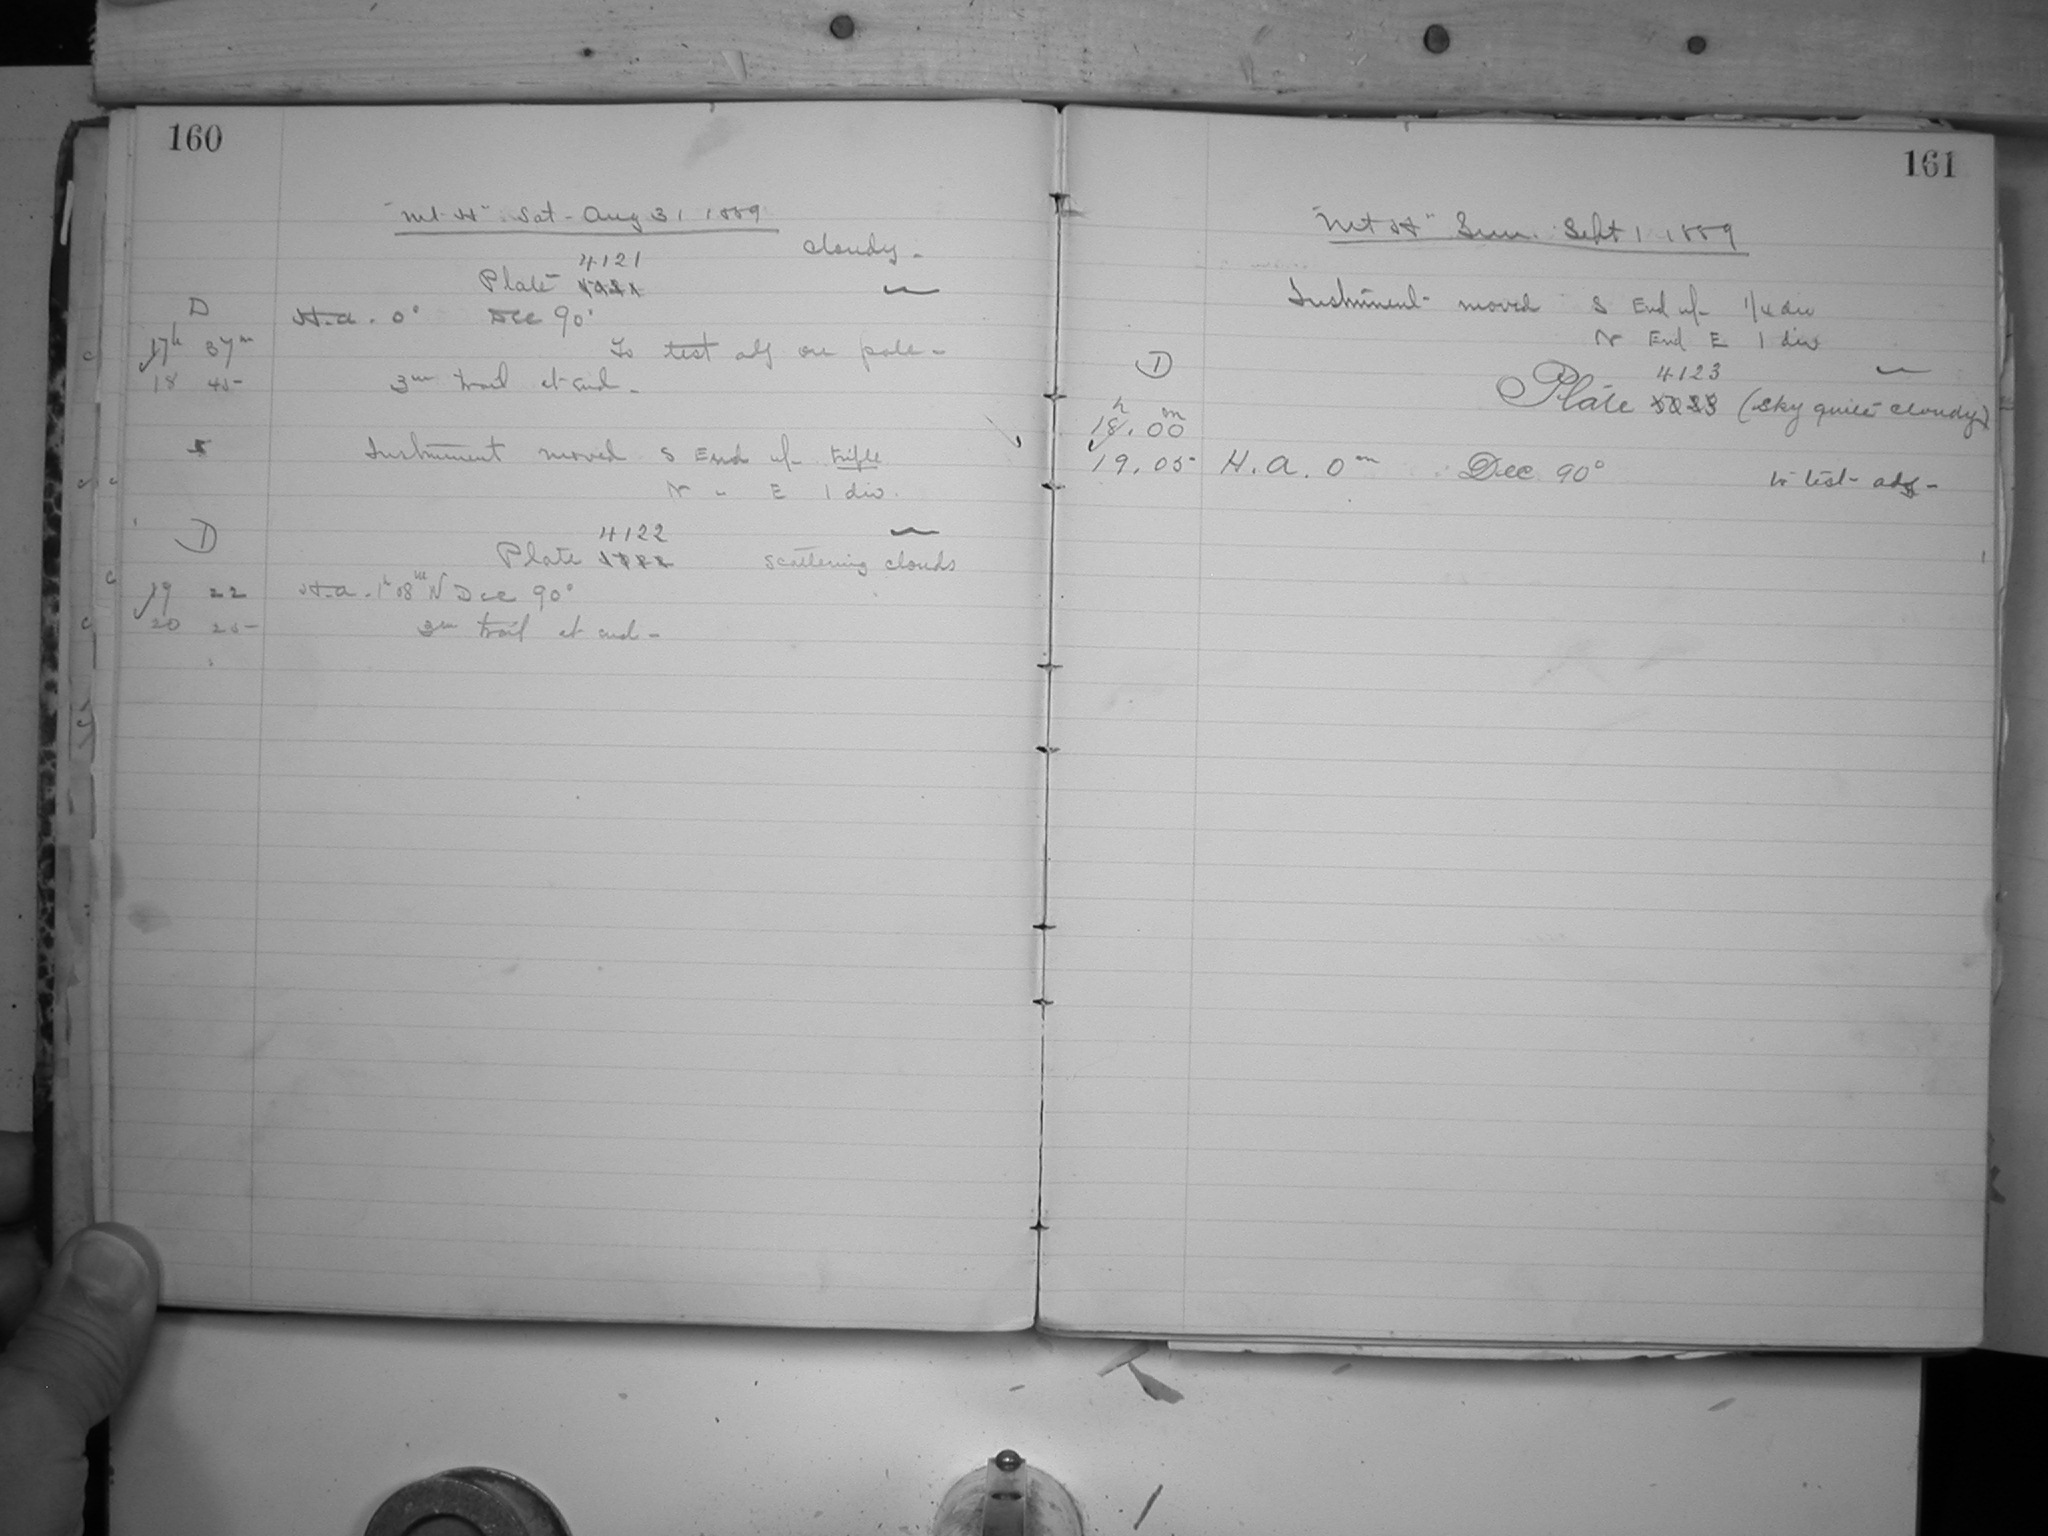 160
"Mt H" Sat - Aug 31 1889
cloudy -
4121
Plate
D
H.a. 0° Dec 90°
17h 37m To test adj on pole -
18 45 3m trail at end -
Instrument moved S End up trifle
N " E 1 div.
4122
D
Plate scattering clouds
19 22 H.a. 1h 08m N Dec 90°
20 25 3m trail at end -
161
"Mt H" Sun. Sept 1 1889
Instrument moved S End up 1/4 div
N End E 1 div
D
4123
Plate (Sky quite cloudy)
18h.00m
19.05 H.A. 0m Dec 90° to test adj -